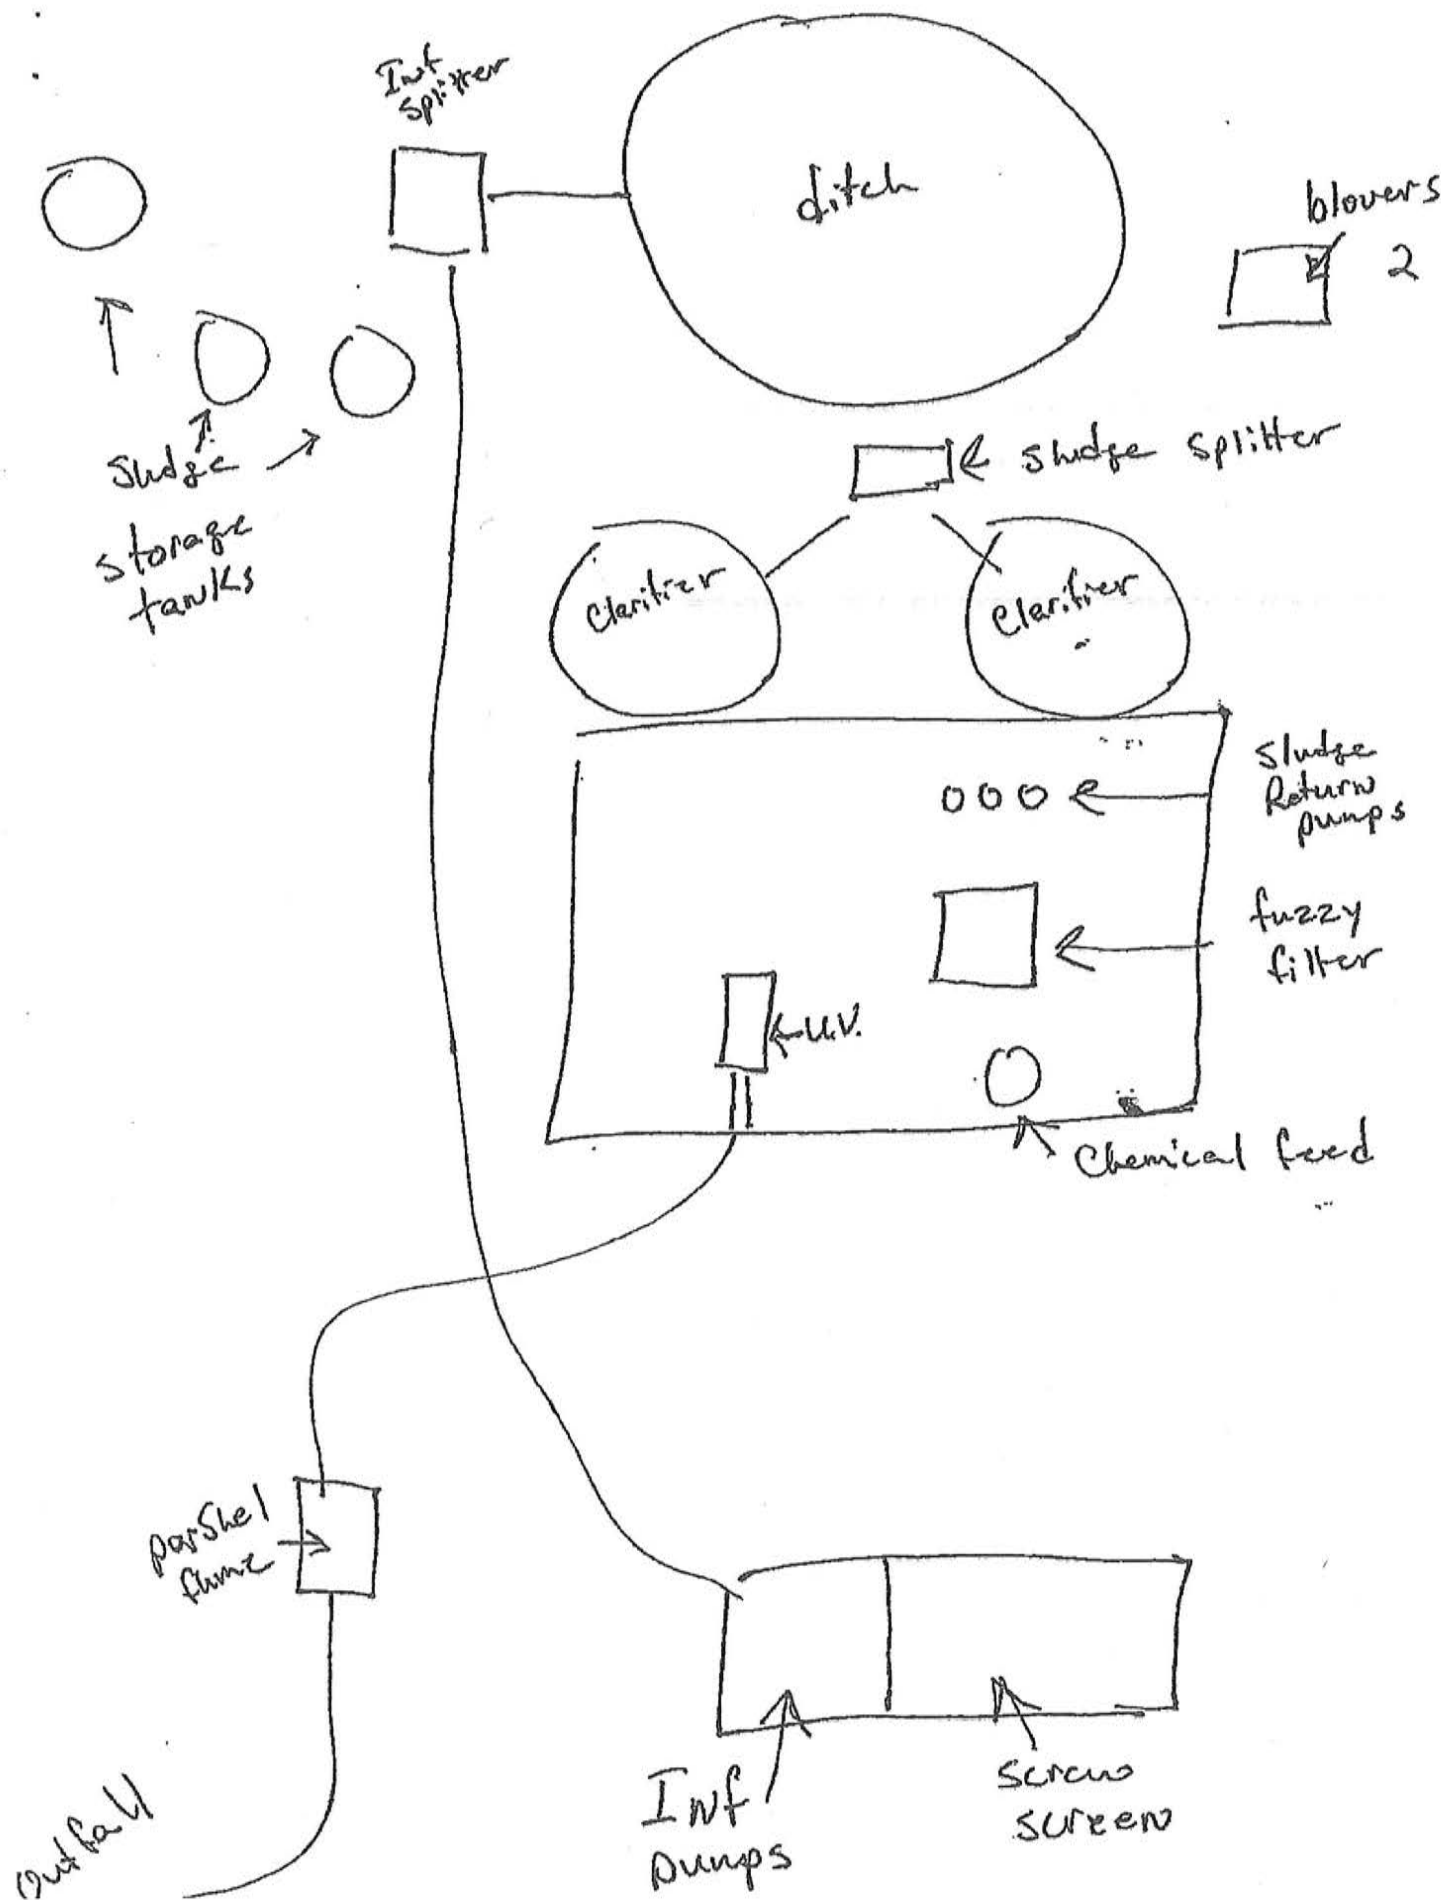 Inf
splitter
ditch
blowers
2
sludge
storage
tanks
sludge splitter
Clarifier
Clarifier
sludge
Return
pumps
fuzzy
filter
U.V.
Chemical feed
parshel
flume
Inf
pumps
screw
screen
outfall